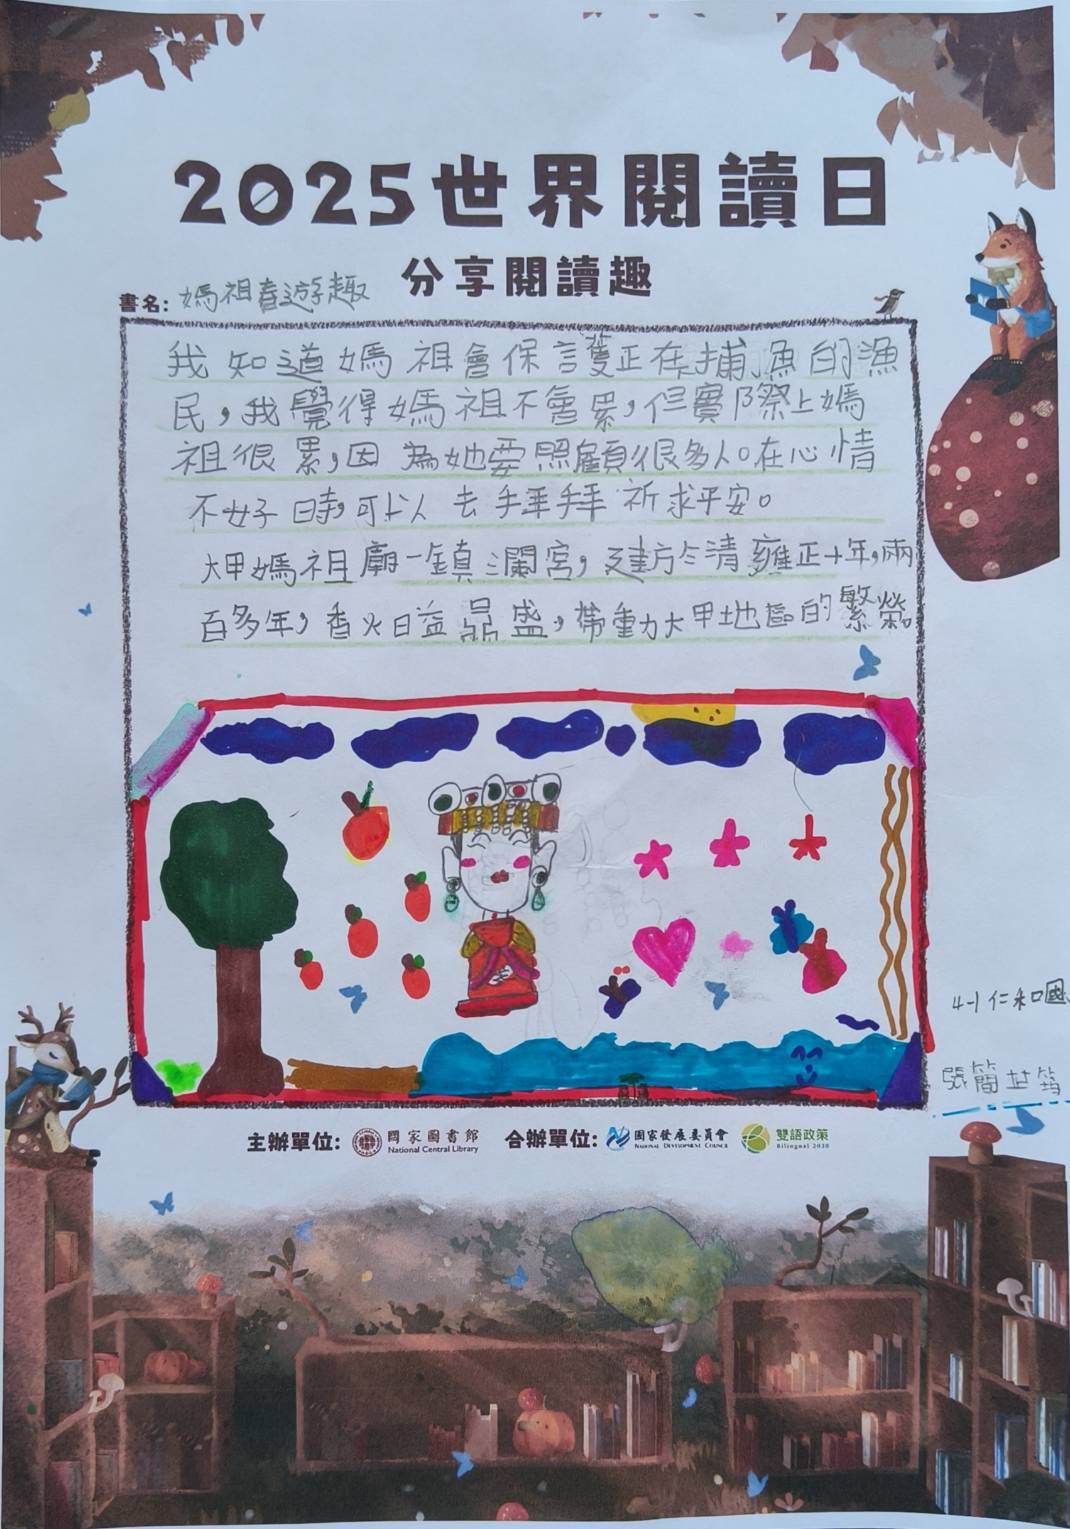 2025世界閱讀日
分享閱讀趣
書名: 媽祖春遊趣
我知道媽祖會保護正在捕魚的漁
民，我覺得媽祖不會累，但實際上媽
祖很累，因為她要照顧很多人。在心情
不好時，可以去拜拜祈求平安。
大甲媽祖廟一鎮瀾宮，建於清雍正十年，兩
百多年，香火日益鼎盛，帶動大甲地區的繁榮
4-1 仁和國
簡
主辦單位: 國家圖書館
National Central Library
合辦單位: 國家發展委員會
National Development Council
雙語政策
Bilingual 2030